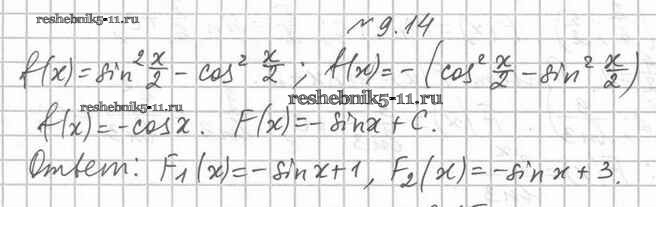 reshebnik5-11.ru
№ 9.14
f(x) = sin² x/2 - cos² x/2 ; f(x) = - (cos² x/2 - sin² x/2)
reshebnik5-11.ru reshebnik5-11.ru
f(x) = -cos x. F(x) = - sin x + C.
Ответ: F₁(x) = - sin x + 1, F₂(x) = - sin x + 3.